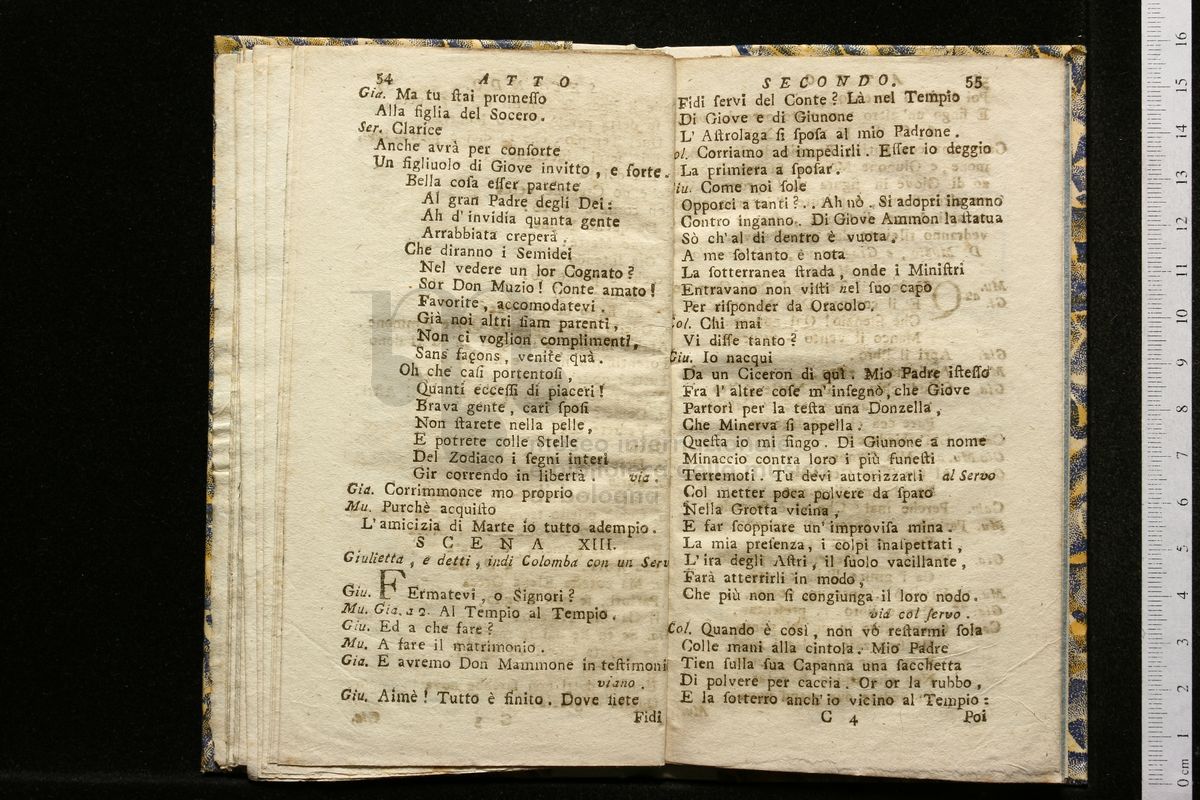 54 ATTO
Gia. Ma tu ſtai promeſſo
Alla figlia del Socero.
Ser. Clarice
Anche avrà per conſorte
Un figliuolo di Giove invitto, e forte.
Bella coſa eſſer parente
Al gran Padre degli Dei:
Ah d'invidia quanta gente
Arrabbiata creperà.
Che diranno i Semidei
Nel vedere un lor Cognato?
Sor Don Muzio! Conte amato!
Favorite, accomodatevi.
Già noi altri ſiam parenti,
Non ci voglion complimenti,
Sans façons, venite quà.
Oh che caſi portentoſi,
Quanti ecceſſi di piaceri!
Brava gente, cari ſpoſi
Non ſtarete nella pelle,
E potrete colle Stelle
Del Zodiaco i ſegni interi
Gir correndo in libertà. via.
Gia. Corrimmonce mo proprio
Mu. Purchè acquiſto
L'amicizia di Marte io tutto adempio.
SCENA XIII.
Giulietta, e detti, indi Colomba con un Serv
Giu. FErmatevi, o Signori?
Mu. Gia. a 2. Al Tempio al Tempio.
Giu. Ed a che fare?
Mu. A fare il matrimonio.
Gia. E avremo Don Mammone in teſtimoni
viano.
Giu. Aimè! Tutto è finito. Dove ſiete
Fidi
SECONDO. 55
Fidi ſervi del Conte? Là nel Tempio
Di Giove e di Giunone
L'Aſtrolaga ſi ſpoſa al mio Padrone.
ol. Corriamo ad impedirli. Eſſer io deggio
La primiera a ſpoſar.
iu. Come noi ſole
Opporci a tanti?.. Ah nò. Si adopri inganno
Contro inganno. Di Giove Ammon la ſtatua
Sò ch'al di dentro è vuota.
A me ſoltanto è nota
La ſotterranea ſtrada, onde i Miniſtri
Entravano non viſti nel ſuo capo
Per riſponder da Oracolo.
ol. Chi mai
Vi diſſe tanto?
Giu. Io nacqui
Da un Ciceron di quì. Mio Padre iſteſſo
Fra l'altre coſe m'inſegnò, che Giove
Partorì per la teſta una Donzella,
Che Minerva ſi appella.
Queſta io mi fingo. Di Giunone a nome
Minaccio contra loro i più funeſti
Terremoti. Tu devi autorizzarli al Servo
Col metter poca polvere da ſparo
Nella Grotta vicina,
E far ſcoppiare un'improviſa mina.
La mia preſenza, i colpi inaſpettati,
L'ira degli Aſtri, il ſuolo vacillante,
Farà atterrirli in modo,
Che più non ſi congiunga il loro nodo.
via col ſervo.
Col. Quando è così, non vò reſtarmi ſola
Colle mani alla cintola. Mio Padre
Tien ſulla ſua Capanna una ſacchetta
Di polvere per caccia. Or or la rubbo,
E la ſotterro anch'io vicino al Tempio:
C 4 Poi